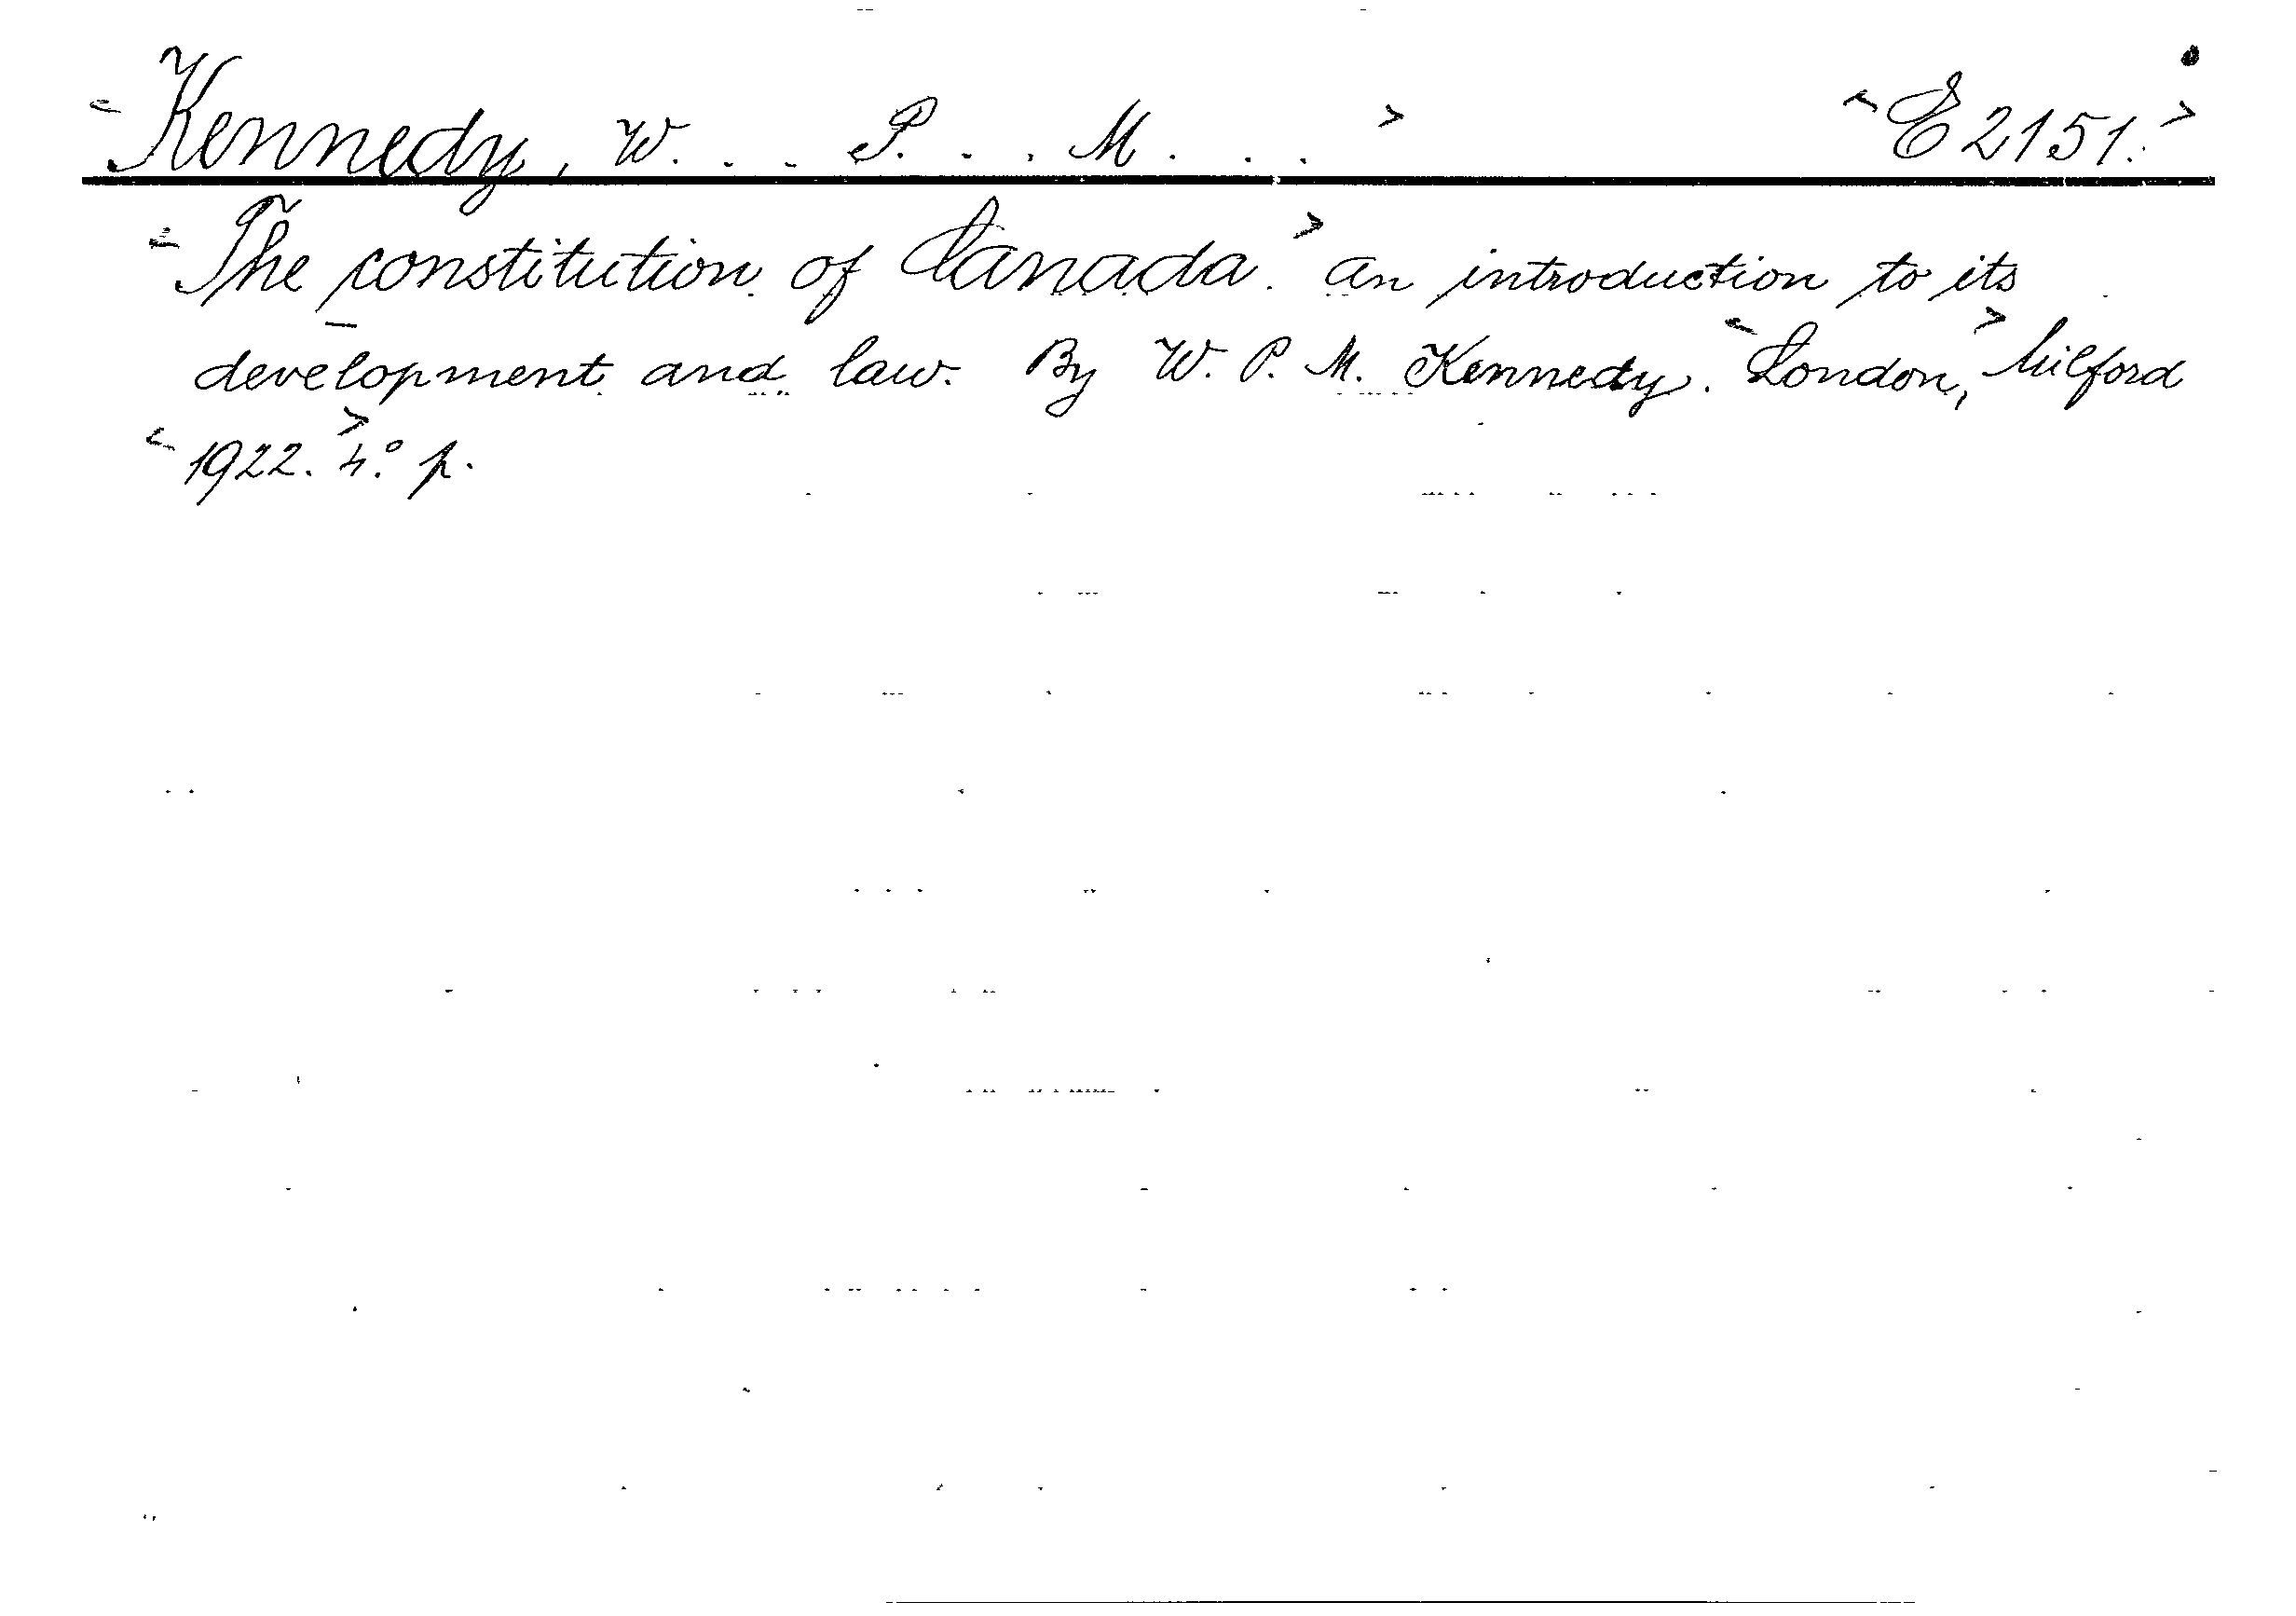 <Kennedy, W. . . P. . . M. . . .> <E 2151.>
<The constitution of Canada.> An introduction to its
development and law. By W. P. M. Kennedy. <London,> Milford
<1922.> 4.° p.